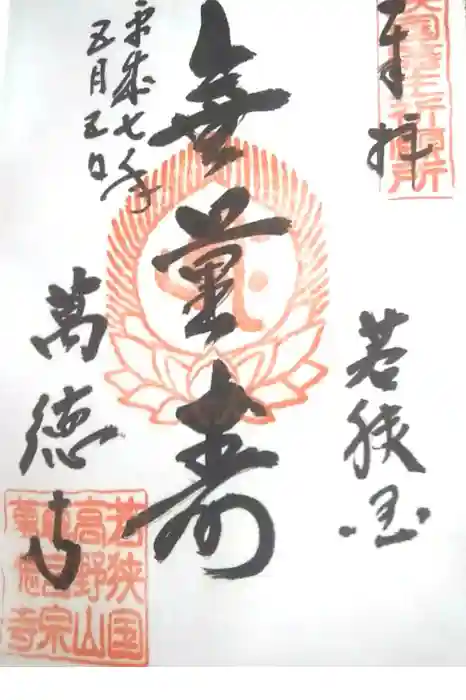 祈願所
奉拝
若狭国
無量寿
平成七年
五月五日
萬徳寺
若狭国
高野山
真言宗
萬徳寺